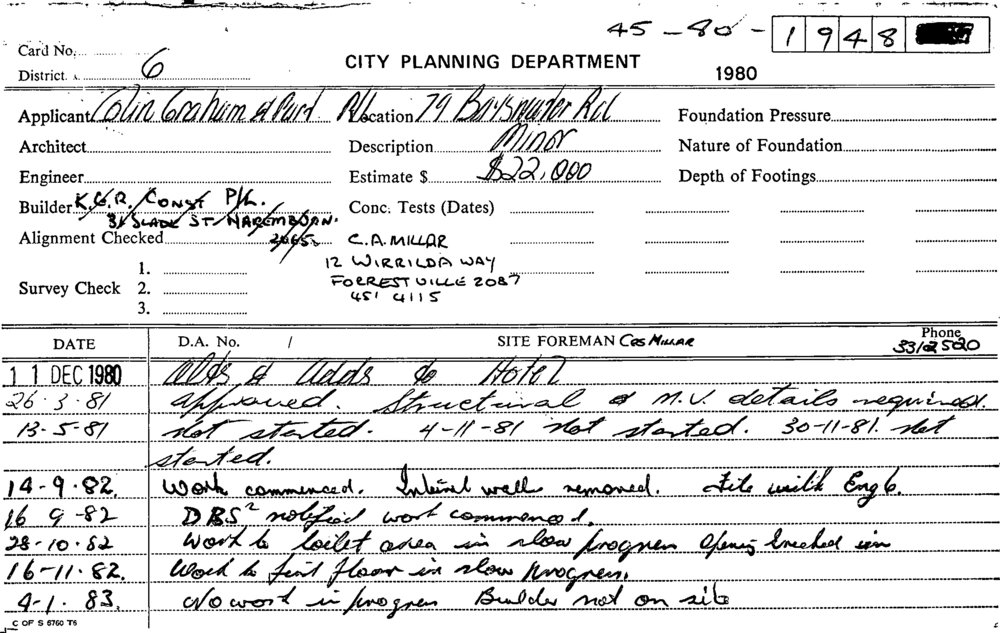 45-80-1948
Card No.
District. 6
CITY PLANNING DEPARTMENT
1980
Applicant Colin Graham & Part P/L
Location 79 Bayswater Rd
Foundation Pressure
Architect
Description Minor
Nature of Foundation
Engineer
Estimate $ $22,000
Depth of Footings
Builder K.G.R. Const P/L.
31 SLADE ST NAREMBURN.
2065
Conc. Tests (Dates)
Alignment Checked
C.A. MILLAR
12 WIRRILDA WAY
FORRESTVILLE 2087
451 4115
Survey Check
1.
2.
3.
DATE
D.A. No. /
SITE FOREMAN Cos Millar
Phone
3312520
11 DEC 1980 Alts & Adds to Hotel
26-3-81 approved. Structural & M.V. details required.
13-5-81 Not started. 4-11-81 Not started. 30-11-81. Not
started.
14-9-82. Work commenced. Internal walls removed. File with Eng 6.
16 9-82 DBS² notified work commenced.
28-10-82 Work to toilet area in slow progress Opening bricked in
16-11-82. Work to first floor in slow progress.
4-1-83. No work in progress Builder not on site
C OF S 6760 T6